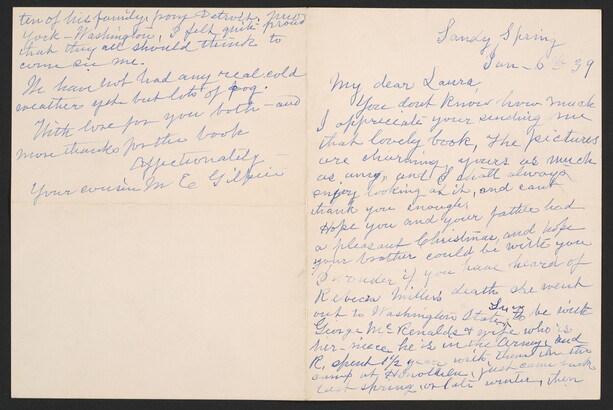 Sandy Spring
Jan - 6th 39
My dear Laura,
You dont know how much
I appreciate your sending me
that lovely book, The pictures
are charming, yours as much
as any, and I shall always
enjoy looking at it, and cant
thank you enough.
Hope you and your father had
a pleasant Christmas, and hope
your brother could be with you
I wonder if you have heard of
Rebecca Millers death she went
out to Washington State, to be with
George McRenalds & wife who is
her niece he is in the Army, and
R. spent 1½ years with them in the
camp at Honolulu, just came back
last spring, or late winter, then
ten of his family, from Detroit, New
York - Washington, I felt quite proud
that they all should think to
come see me.
We have not had any real cold
weather yet but lots of fog.
With love for you both - and
more thanks for the book
Affectionately
Your cousin M E Gilpin